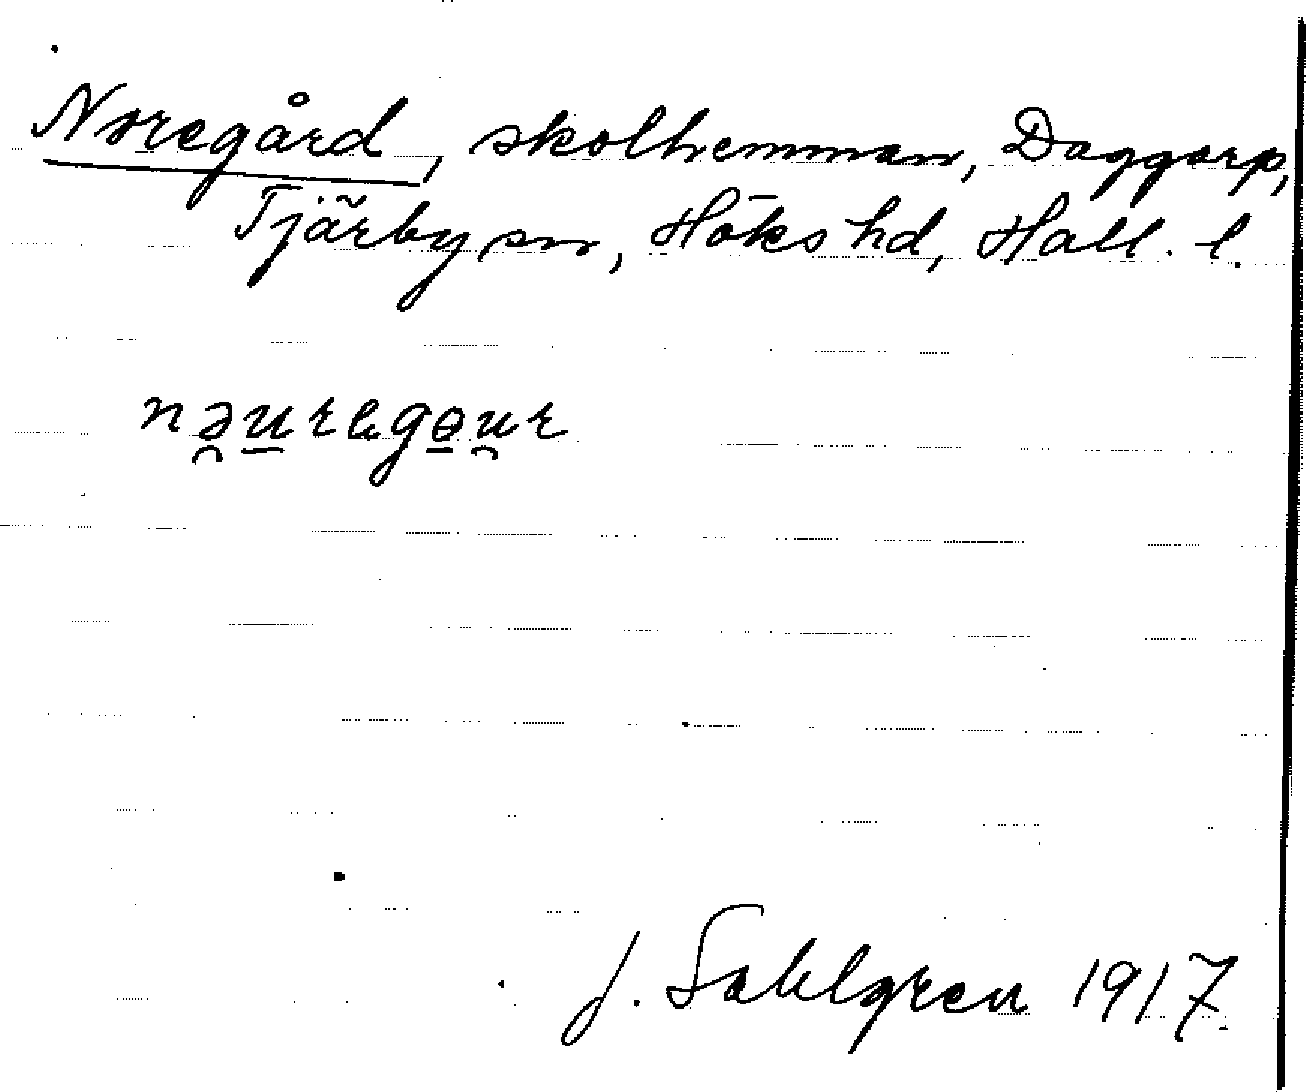 Noregård, skolhemman, Daggarp,
Tjärby sn, Höks hd, Hall. l.
nəuregɵur
J. Sahlgren 1917.